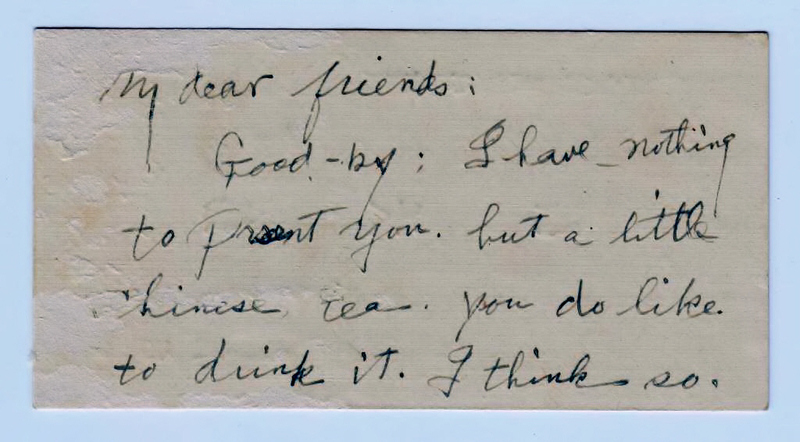 My dear friends:
Good-by; I have nothing
to present you. but a little
chinese tea. you do like.
to drink it. I think so.